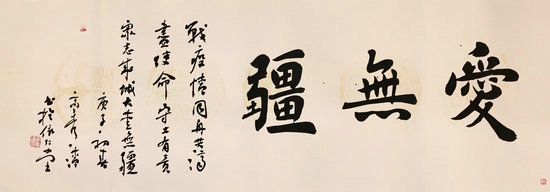 愛無疆
戰疫情同舟共濟
盡使命守土有責
眾志成城大愛無疆
庚子初春